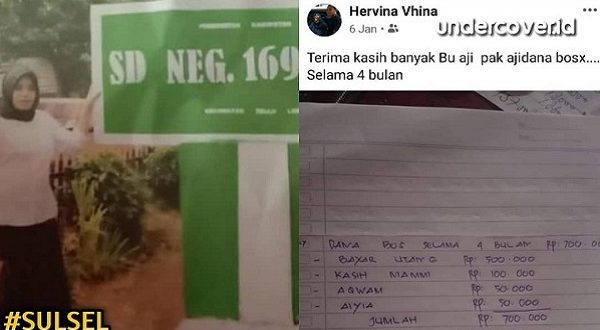 PEMERINTAH KABUPATEN
SD NEG. 169
KECAMATAN
#SULSEL
Hervina Vhina
6 Jan
undercover.id
Terima kasih banyak Bu aji pak ajidana bosx....
Selama 4 bulan
DANA BOS SELAMA 4 BULAN Rp. 700.00
- BAYAR UTANG Rp. 500.000
- KASIH MAMMI Rp. 100.000
- AQWAM Rp. 50.000
- AIYIA Rp. 50.000
JUMLAH Rp. 700.000